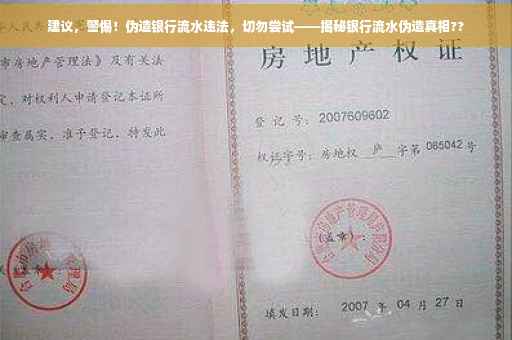 建议，警惕！伪造银行流水违法，切勿尝试——揭秘银行流水伪造真相??
市房地产管理法》及有关
定，对权利人申请登记本证所
审查属实，准予登记，特发此
房地产权证
登记号：2007609602
权证字号：房地权 庐 字第 085042 号
(盖章)：
填发日期： 2007 年 04 月 27 日